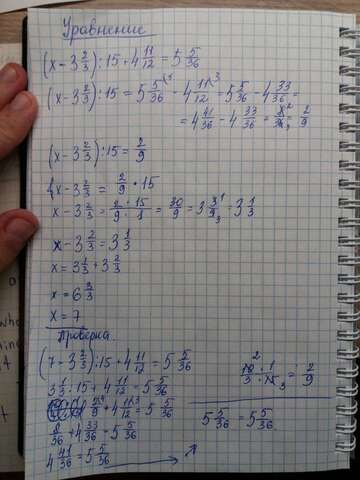 Уравнение
(x - 3 2/3) : 15 + 4 11/12 = 5 5/36
(x - 3 2/3) : 15 = 5 5/36 - 4 11/12 = 5 5/36 - 4 33/36 =
= 4 41/36 - 4 33/36 = 8/36 = 2/9
(x - 3 2/3) : 15 = 2/9
x - 3 2/3 = 2/9 · 15
x - 3 2/3 = 2 · 15 / 9 · 1 = 30/9 = 3 3/9 = 3 1/3
x - 3 2/3 = 3 1/3
x = 3 1/3 + 3 2/3
x = 6 3/3
x = 7
Проверка.
(7 - 3 2/3) : 15 + 4 11/12 = 5 5/36
3 1/3 : 15 + 4 11/12 = 5 5/36
10 · 1 / 3 · 15 = 2/9
2/9 + 4 11/12 = 5 5/36
8/36 + 4 33/36 = 5 5/36
4 41/36 = 5 5/36
5 5/36 = 5 5/36